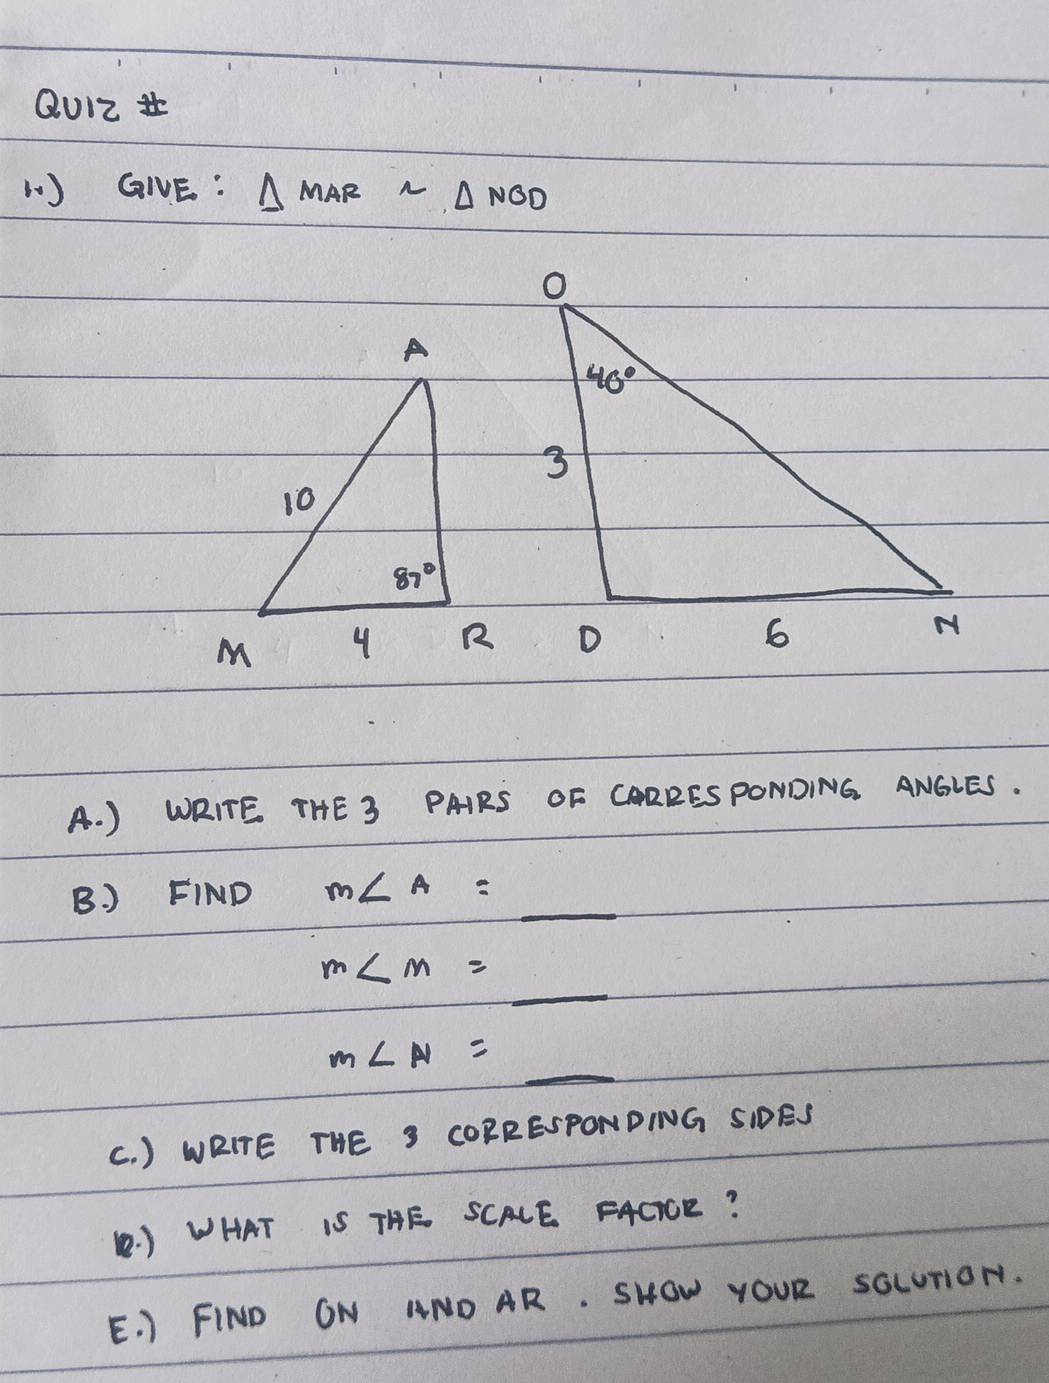 QUIZ #
1.) GIVE : Δ MAR ~ Δ NOD
O
A
40°
3
10
87°
M 4 R D 6 N
A.) WRITE THE 3 PAIRS OF CARRESPONDING ANGLES.
B.) FIND m∠ A = ___
m∠ M = ___
m∠ N = ___
C.) WRITE THE 3 CORRESPONDING SIDES
D.) WHAT IS THE SCALE FACTOR ?
E.) FIND ON AND AR . SHOW YOUR SOLUTION.